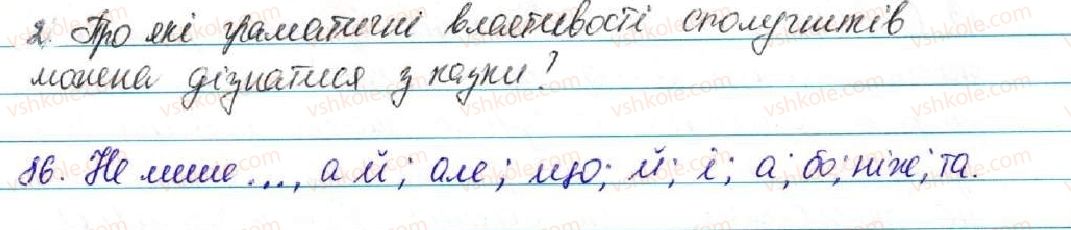 2. Про які граматичні властивості сполучників
можна дізнатися з казки?
86. Не лише..., а й; але; що; й; і; а; бо; ніже; та.